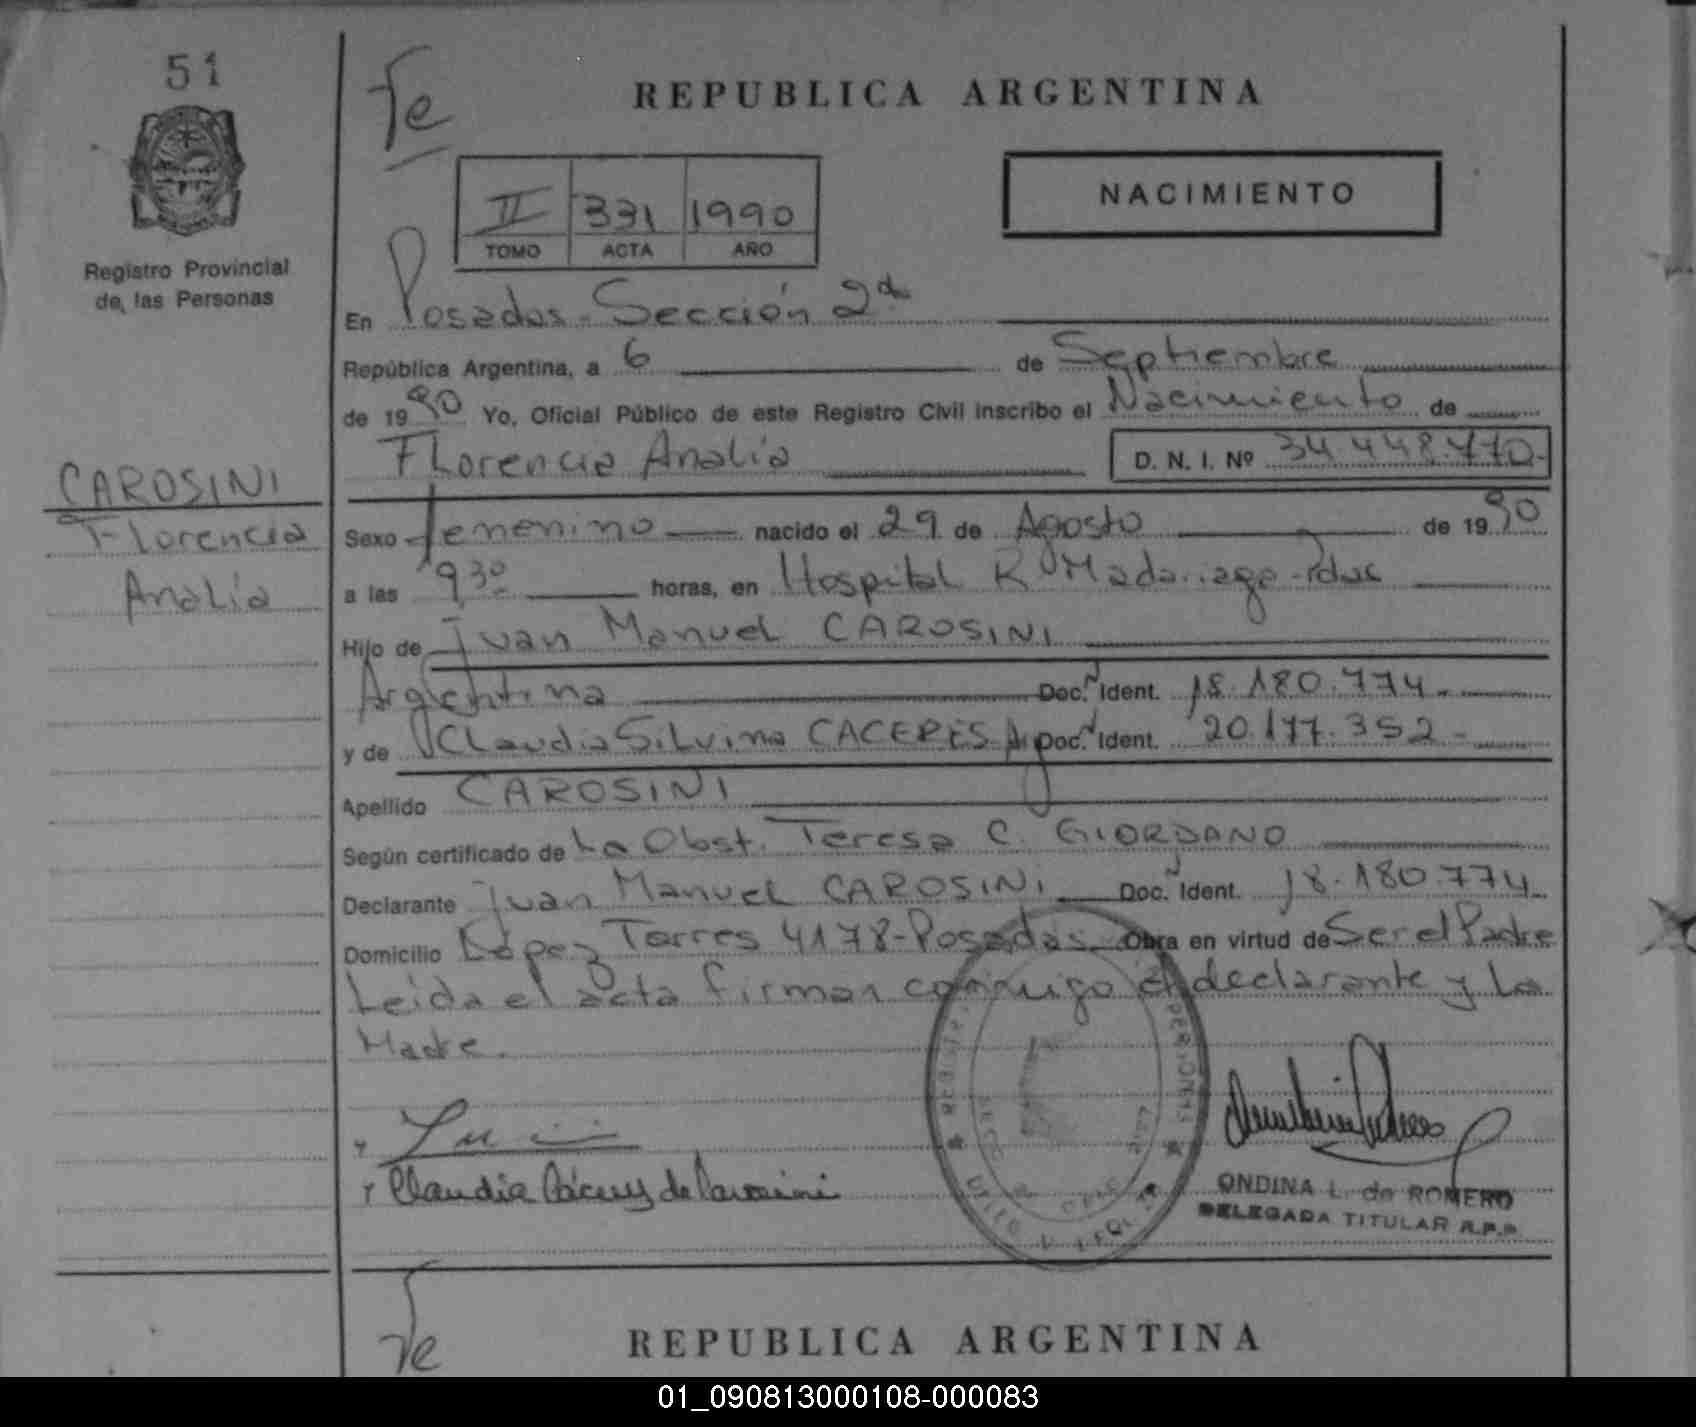 51
Fe
REPUBLICA ARGENTINA
NACIMIENTO
II 331 1990
TOMO ACTA AÑO
Registro Provincial
de las Personas
En Posadas - Sección 2da
República Argentina, a 6 de Septiembre
de 1990 Yo, Oficial Público de este Registro Civil inscribo el Nacimiento de
Florencia Analía D. N. I. Nº 34.448.770-
CAROSINI
Florencia
Analía
Sexo femenino nacido el 29 de Agosto de 1990
a las 9,30 horas, en Hospital R. Madariaga - Pdas
Hijo de Juan Manuel CAROSINI
Argentina Doc. N Ident. 18.180.774.-
y de Claudia Silvina CACERES Arg Doc. N Ident. 20.177.352-
Apellido CAROSINI
Según certificado de La Obst. Teresa C. GIORDANO
Declarante Juan Manuel CAROSINI Doc. N Ident. 18.180.774-
Domicilio López Torres 4178-Posadas Obra en virtud de Ser el Padre
Leida el acta firman conmigo el declarante y La
Madre.
Claudia Cáceres de Carosini
ONDINA L. de ROMERO
DELEGADA TITULAR R.P.P.
Fe
REPUBLICA ARGENTINA
01_090813000108-000083